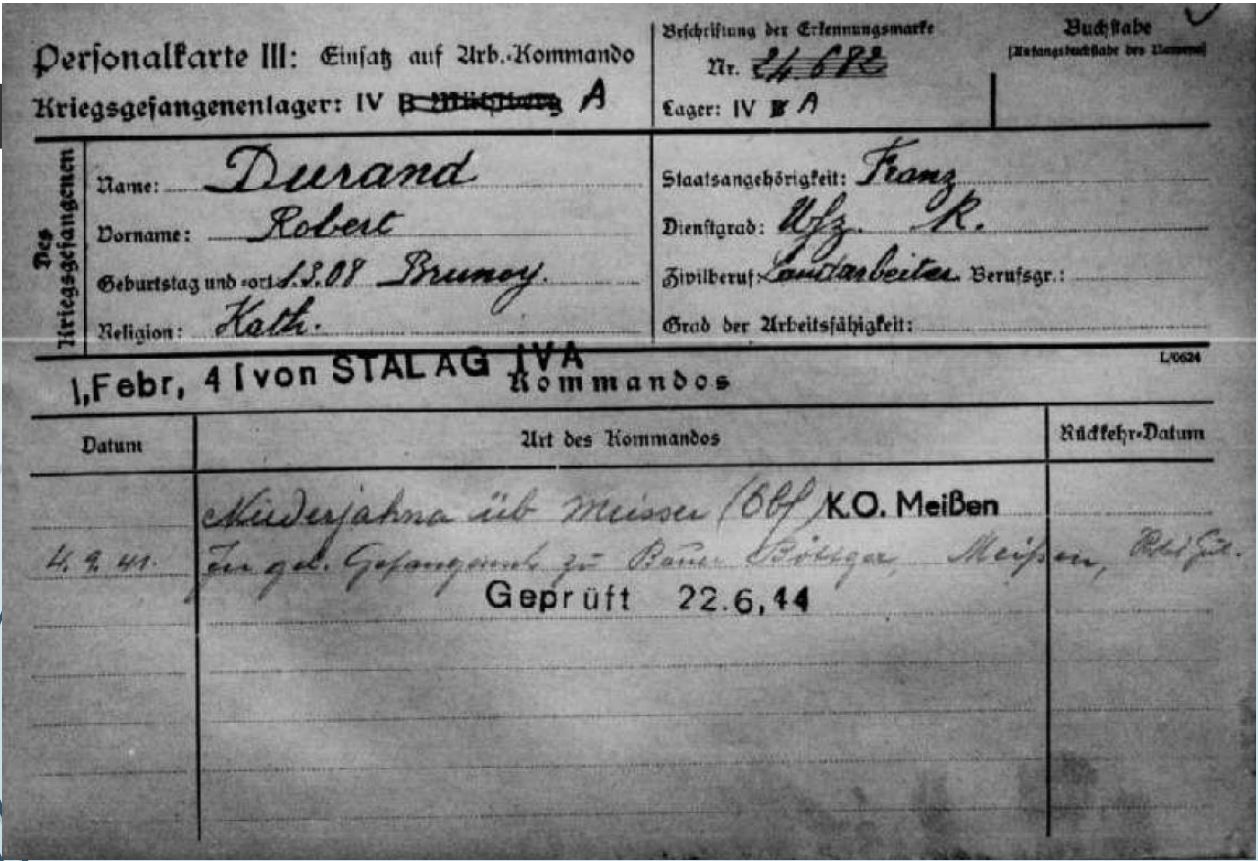 Personalkarte III: Einsatz auf Arb.-Kommando
Kriegsgefangenenlager: IV B Mühlberg A
Beschriftung der Erkennungsmarke
Nr. 24682
Lager: IV B A
Buchstabe
(Anfangsbuchstabe des Namens)
Des Kriegsgefangenen
Name: Durand
Vorname: Robert
Geburtstag und -ort 1.3.08 Brunoy.
Religion: Kath.
Staatsangehörigkeit: Franz
Dienstgrad: Ufz. R.
Zivilberuf: Landarbeiter Berufsgr.:
Grad der Arbeitsfähigkeit:
L/0624
1, Febr, 41 von STALAG IVA
Kommandos
Datum Art des Kommandos Rückkehr-Datum
Niederjahna üb Meisser (Bbf) K.O. Meißen
4. 9. 41. In gel. zu Bauer Böttger, Meißen,
Geprüft 22.6,44